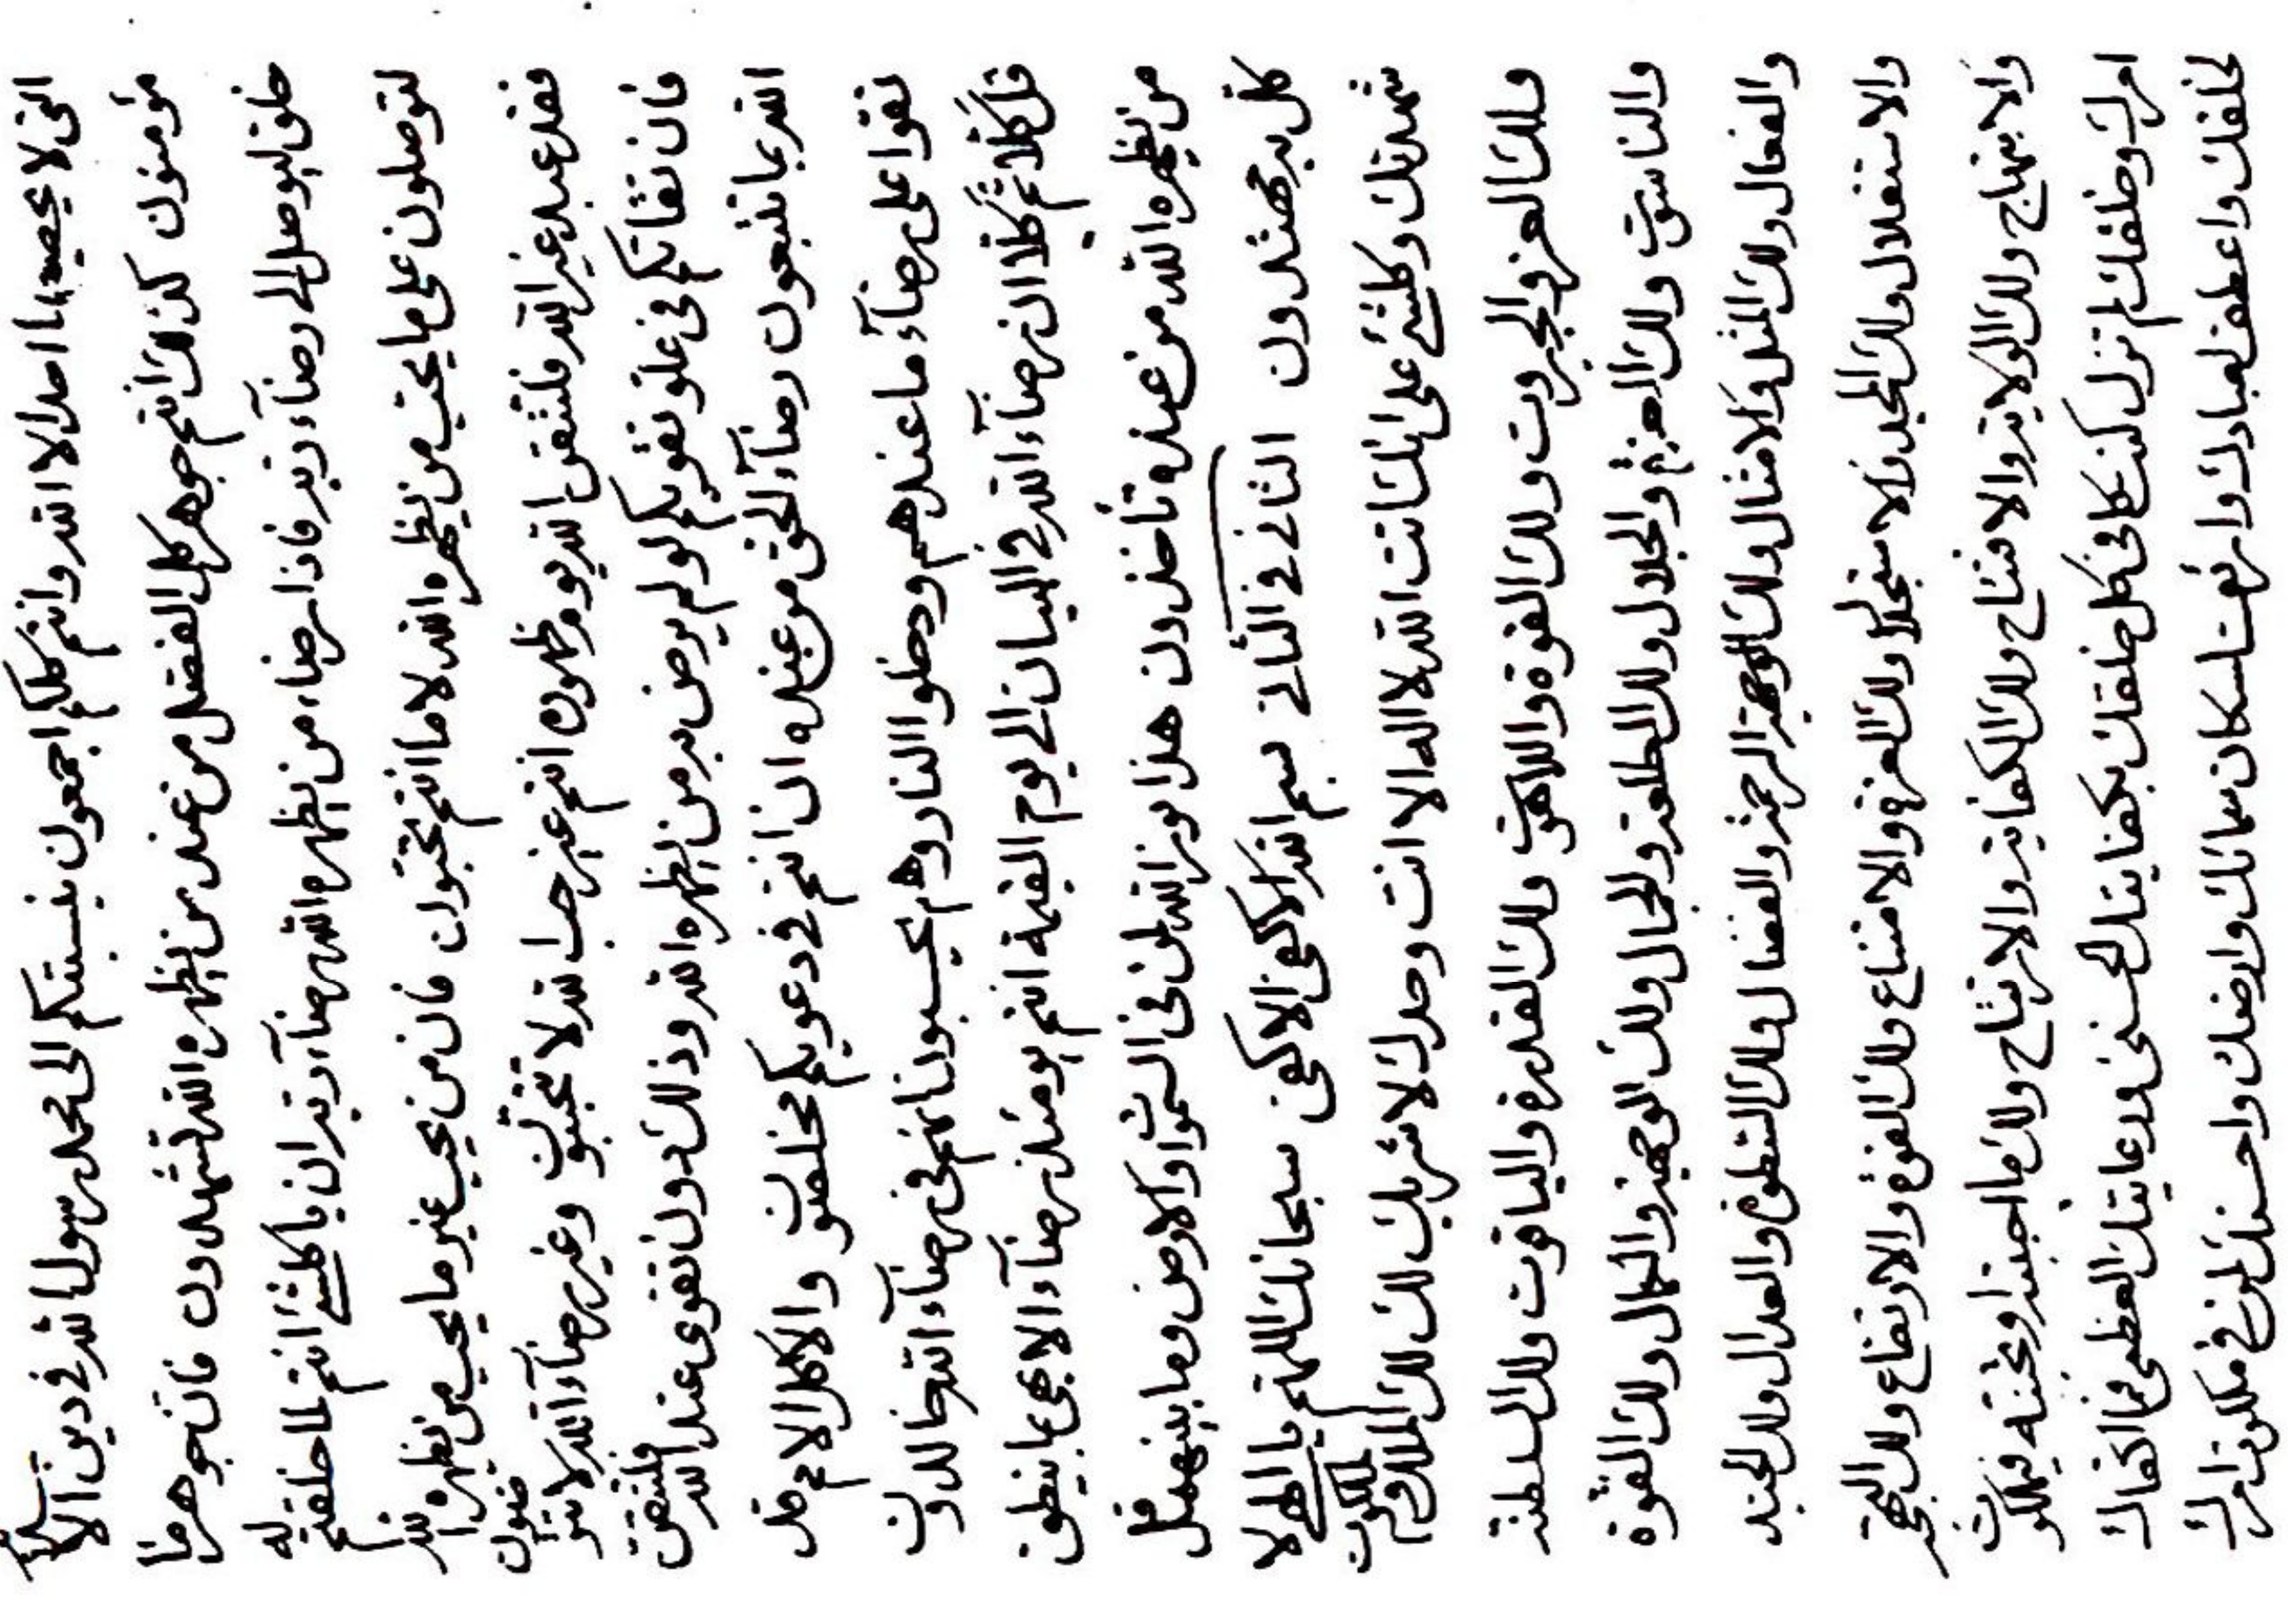 التى لا يحصيها احد الا الله وانتم كلكم اجمعون بنسبتكم الى محمد رسول الله فى دين الاسلام
مؤمنون كذلك انتم جوهر كل الفضل من عند من يظهره الله تشهدون فان جوهر ما
خلق ليوصل الى رضاء ربه فاذا رضاء من يظهره الله رضاء ربه ان يا كلشئ انتم لما خلقتم له
لتوصلون على ما يحب من يظهره الله لا ما انتم تحبون فان من يحب غير ما يحب من يظهره الله
فقد عبد غير الله فلتتقن الله يوم ظهوره انتم غير حب الله لا تحبون وغير رضاء الله لا ترضون
فان تقاتكم فى علو تقويكم لو لم يرض به من يظهره الله وذلك دون تقوى عند الله فلتتقن
الله بما تتبعون رضاء الحق من عنده ان انتم فى دعويكم مخلصون والا كلا الامم قد
تقوا على رضاء ما عندهم ودخلوا النار وهم يحسبون انهم فى رضاء الله خالدون
قل كلا ثم كلا ان رضاء الله فى البيان الى يوم القيمة انتم يومئذ رضاء الا بهى بما ينطق
من يظهره الله من عنده تاخذون هذا نور الله لمن فى السموات والارض وما بينهما قل
كل به مهتدون الثانى فى الثانى بسم الله الاكفى الاكفى سبحانك اللهم يا الهى لا
شهدنك وكلشئ على انك انت الله لا اله الا انت وحدك لا شريك لك لك الملك والملكوت
ولك العز والجبروت ولك القوة واللاهوت ولك القدرة والياقوت ولك السلطنة
والناسوت ولك العزة والجلال ولك الطلعة والجمال ولك الوجهة والكمال ولك القوة
والفعال ولك المثل والامثال ولك الرحمة والفضال ولك السطوة والعدال ولك المحبة
والاستقلال ولك المجد والاستجلال ولك العزة والامتناع ولك القوة والارتفاع ولك البهجة
والابتهاج ولك الولاية والافتتاح ولك الكفاية والارتياح ولك ما احببته وتحبنه فى ملكوت
امرك وخلقك لم تزل كنت كافى كل خلقك بكفايتك الحسنى ورعايتك العظمى فما اكفاك
لخلقك واعطف لعبادك وارئفك لسكان سمائك وارضك واحسنك لمن فى ملكوت امرك